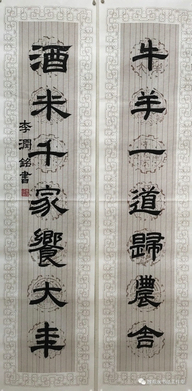 牛羊一道歸農舍
酒未千家饗大年
李潤銘書